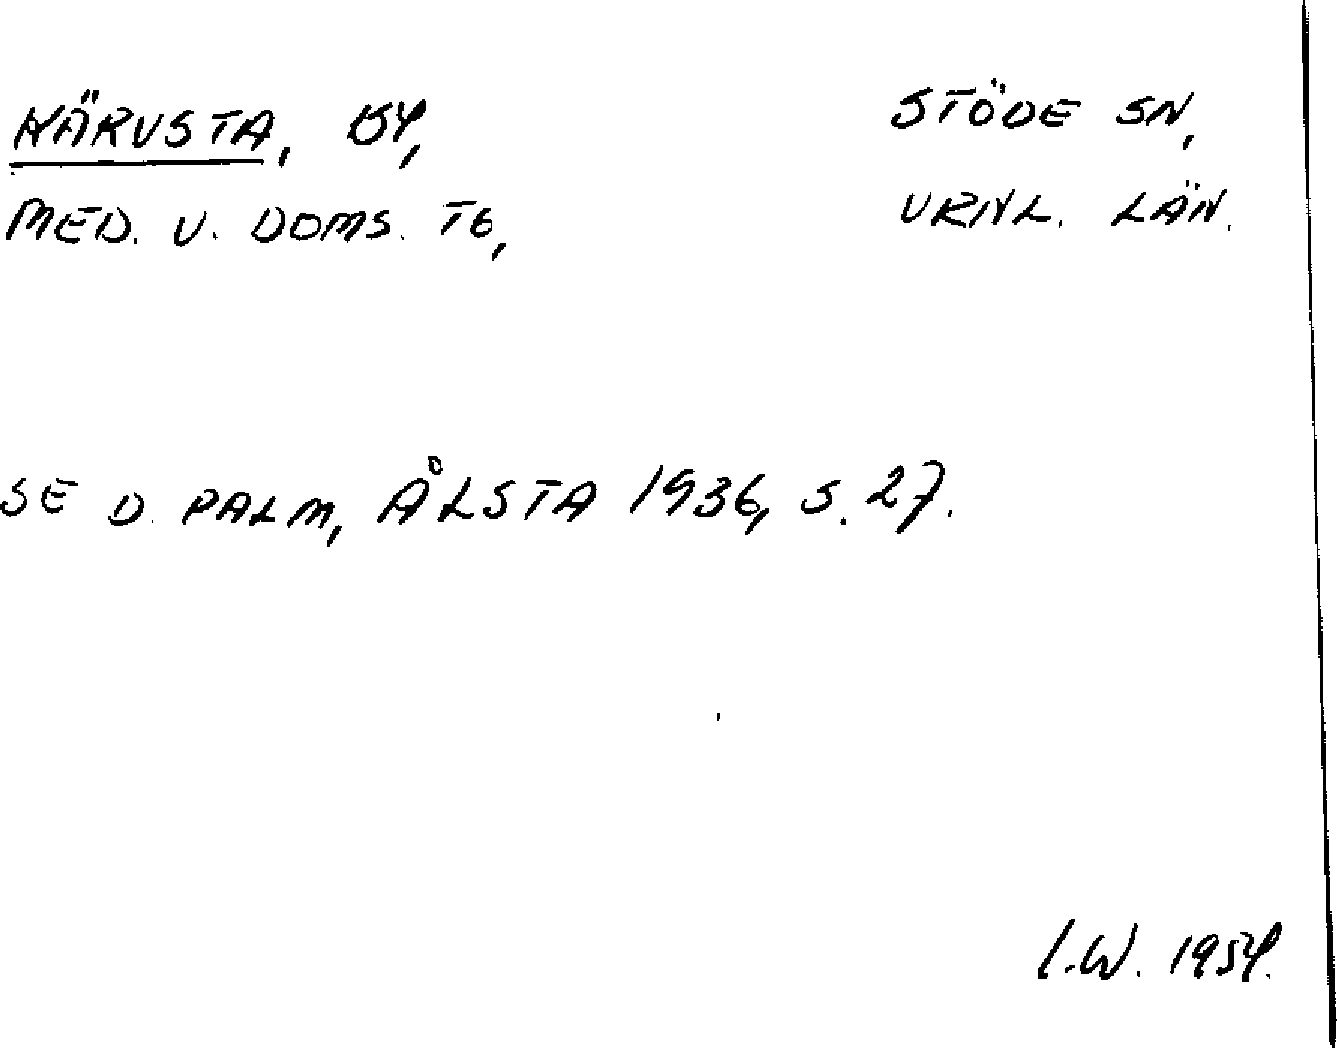 KÄRVSTA, BY,
STÖDE SN,
MED. V. DOMS. TG,
VRNL. LÄN.
SE D. PALM, ÅLSTA 1936, S. 27.
I.W. 1954.